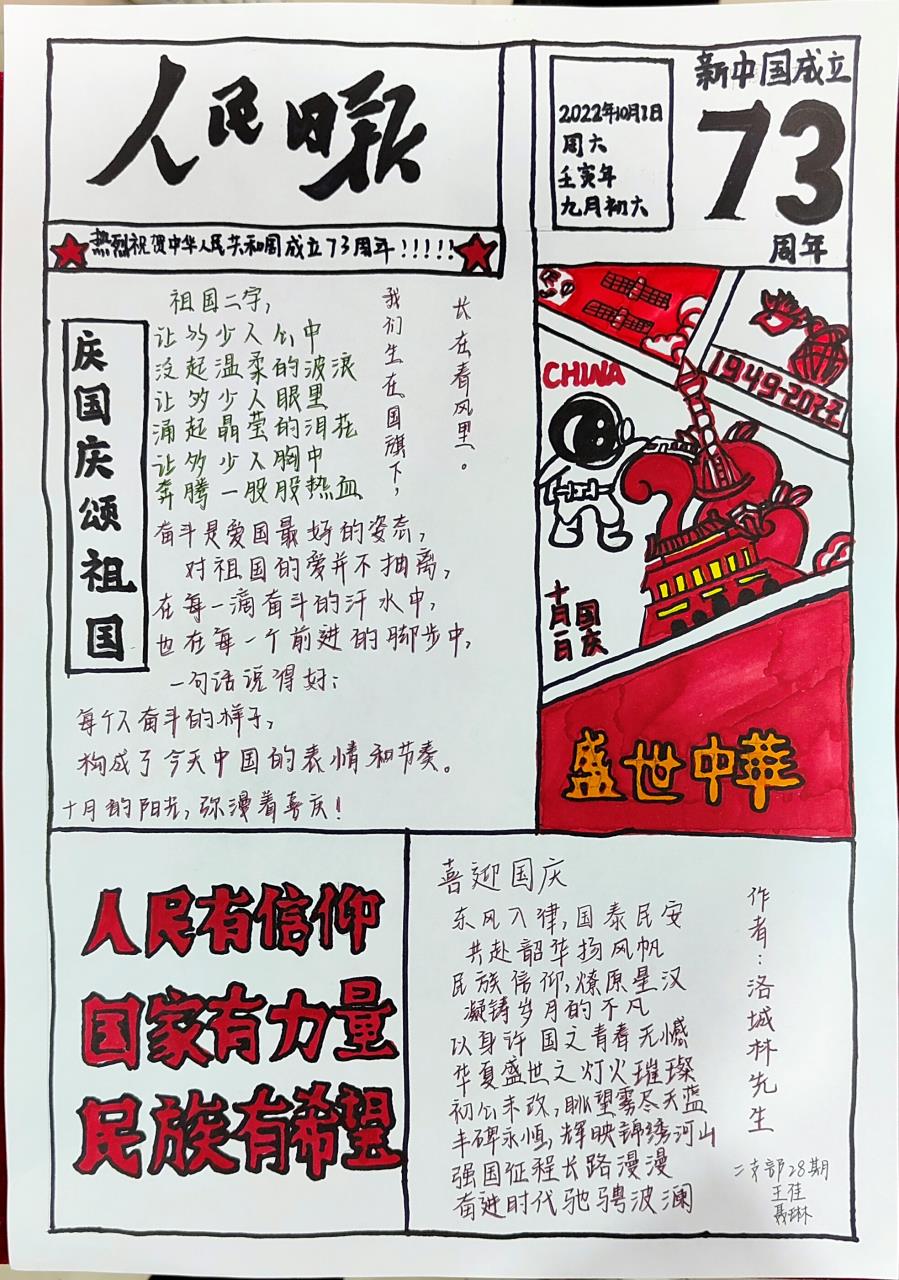 人民日报
2022年10月1日
周六
壬寅年
九月初六
新中国成立
73
周年
热烈祝贺中华人民共和国成立73周年!!!!!
庆国庆颂祖国
祖国二字,
让多少人心中
泛起温柔的波浪
让多少人眼里
涌起晶莹的泪花
让多少人胸中
奔腾一股股热血
我们生在国旗下,
长在春风里。
奋斗是爱国最好的姿态,
对祖国的爱并不抽离,
在每一滴奋斗的汗水中,
也在每一个前进的脚步中,
一句话说得好:
每个人奋斗的样子,
构成了今天中国的表情和节奏。
十月的阳光,弥漫着喜庆!
CHINA
1949-2022
十月一日
国庆
盛世中华
人民有信仰
国家有力量
民族有希望
喜迎国庆
东风入律,国泰民安
共赴韶华扬风帆
民族信仰,燎原星汉
凝铸岁月的不凡
以身许国文青春无憾
华夏盛世之灯火璀璨
初心未改,眺望雾尽天蓝
丰碑永恒,辉映锦绣河山
强国征程长路漫漫
奋进时代驰骋波澜
作者:洛城林先生
二支部28期
王佳
聂琳